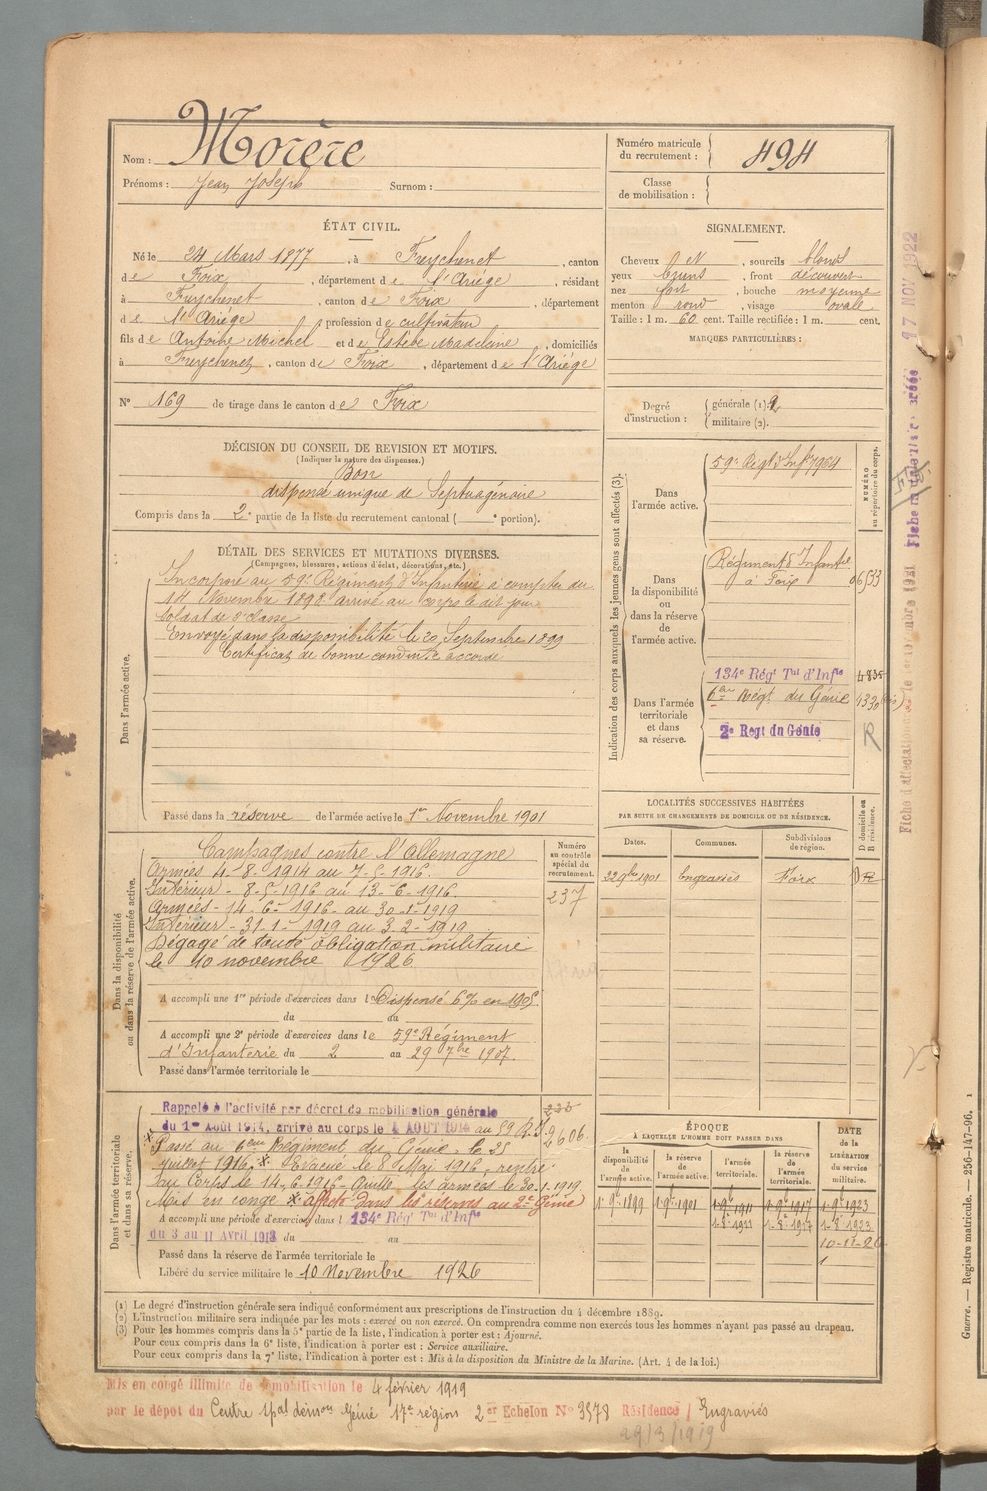 Nom : Morère
Prénoms : Jean Joseph Surnom :
Numéro matricule du recrutement : 494
Classe de mobilisation :
ÉTAT CIVIL.
Né le 24 Mars 1877, à Freychenet, canton
de Foix, département de l'Ariège, résidant
à Freychenet, canton de Foix, département
de l'Ariège, profession de cultivateur
fils de Antoine Michel et de Estèbe Madeleine, domiciliés
à Freychenet, canton de Foix, département de l'Ariège
N° 169 de tirage dans le canton de Foix
SIGNALEMENT.
Cheveux et, sourcils blonds
yeux bruns, front découvert
nez fort, bouche moyenne
menton rond, visage ovale
Taille : 1 m. 60 cent. Taille rectifiée : 1 m. cent.
MARQUES PARTICULIÈRES :
Degré d'instruction : générale (1). 2
militaire (2).
DÉCISION DU CONSEIL DE REVISION ET MOTIFS.
(Indiquer la nature des dispenses.)
Bon
dispensé unique de Septuagénaire
Compris dans la 2e partie de la liste du recrutement cantonal ( e portion).
DÉTAIL DES SERVICES ET MUTATIONS DIVERSES.
(Campagnes, blessures, actions d'éclat, décorations, etc.)
Dans l'armée active.
Incorporé au 59e Régiment d'Infanterie à compter du
14 Novembre 1898 arrivé au corps le dit jour
soldat de 2e classe
Envoyé dans la disponibilité le 20 Septembre 1899
Certificat de bonne conduite accordé
Passé dans la réserve de l'armée active le 1er Novembre 1901
Indication des corps auxquels les jeunes gens sont affectés (3).
NUMÉRO au répertoire du corps.
Dans l'armée active.
59e Regt d'Infie 7964
Dans la disponibilité ou dans la réserve de l'armée active.
Régiment d'Infanterie
à Foix
Dans l'armée territoriale et dans sa réserve.
134e Régt Tal d'Infie 4835
6eme Régt du Génie
2e Regt du Génie
R
LOCALITÉS SUCCESSIVES HABITÉES
PAR SUITE DE CHANGEMENTS DE DOMICILE OU DE RÉSIDENCE.
Dates. Communes. Subdivisions de région. D domicile ou R résidence.
22 9bre 1901 Engraviès Foix D
Dans la disponibilité ou dans la réserve de l'armée active.
Numéro au contrôle spécial du recrutement.
237
Campagnes contre l'Allemagne
Armées 4-8-1914 au 7-5-1916.
Intérieur - 8-5-1916 au 13-6-1916.
Armées - 14-6-1916 au 30-1-1919
Intérieur - 31-1-1919 au 3-2-1919
Dégagé de toute obligation militaire
le 10 novembre 1926
A accompli une 1re période d'exercices dans l Dispensé 6% en 1905
du au
A accompli une 2e période d'exercices dans le 59e Régiment
d'Infanterie du 2 au 29 7bre 1907.
Passé dans l'armée territoriale le
Dans l'armée territoriale et dans sa réserve.
Rappelé à l'activité par décret de mobilisation générale
du 1er Août 1914, arrivé au corps le 4 AOUT 1914 au 59 R.I.
Passé au 6eme Régiment du Génie le 25
Evacué le 8 Mai 1916, rentré
au Corps le 14-6-1916 - Quitte les armées le 30-1-1919.
Mis en congé affecté dans les réserves au 2e Génie
A accompli une période d'exercices dans l 134e Régt Tal d'Infie
du 3 au 11 Avril 1913 du au
Passé dans la réserve de l'armée territoriale le
Libéré du service militaire le 10 Novembre 1926
ÉPOQUE
À LAQUELLE L'HOMME DOIT PASSER DANS
la disponibilité de l'armée active. la réserve de l'armée active. l'armée territoriale. la réserve de l'armée territoriale. DATE de la LIBÉRATION du service militaire.
1-9bre 1899 1-9bre 1901 1-9bre 1911 1-9bre 1917 1-9bre 1923
1-8-1911 1-8-1917 1-8-1923
10-11-26
(1) Le degré d'instruction générale sera indiqué conformément aux prescriptions de l'instruction du 4 décembre 1889.
(2) L'instruction militaire sera indiquée par les mots : exercé ou non exercé. On comprendra comme non exercés tous les hommes n'ayant pas passé au drapeau.
(3) Pour les hommes compris dans la 5e partie de la liste, l'indication à porter est : Ajourné.
Pour ceux compris dans la 6e liste, l'indication à porter est : Service auxiliaire.
Pour ceux compris dans la 7e liste, l'indication à porter est : Mis à la disposition du Ministre de la Marine. (Art. 4 de la loi.)
Mis en congé illimité de démobilisation le 4 février 1919
par le dépot du Centre Génie 17e région 2er Echelon N° 3578 Résidence Engraviès
29/3/1919
17 NOV 1922
Guerre. — Registre matricule. — 256-147-96. 1